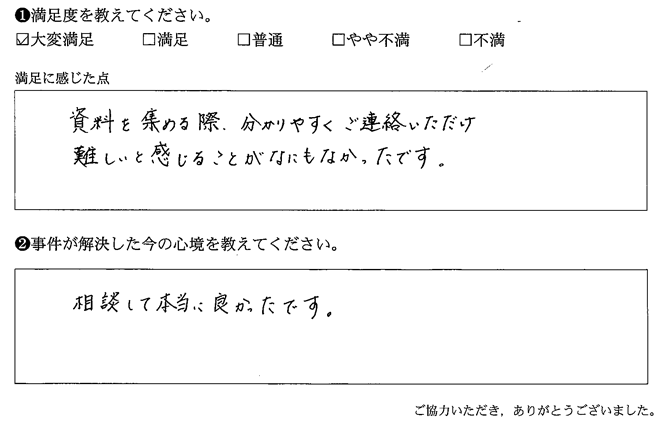 ❶満足度を教えてください。
☑大変満足 □満足 □普通 □やや不満 □不満
満足に感じた点
資料を集める際、分かりやすくご連絡いただけ
難しいと感じることがなにもなかったです。
❷事件が解決した今の心境を教えてください。
相談して本当に良かったです。
ご協力いただき，ありがとうございました。